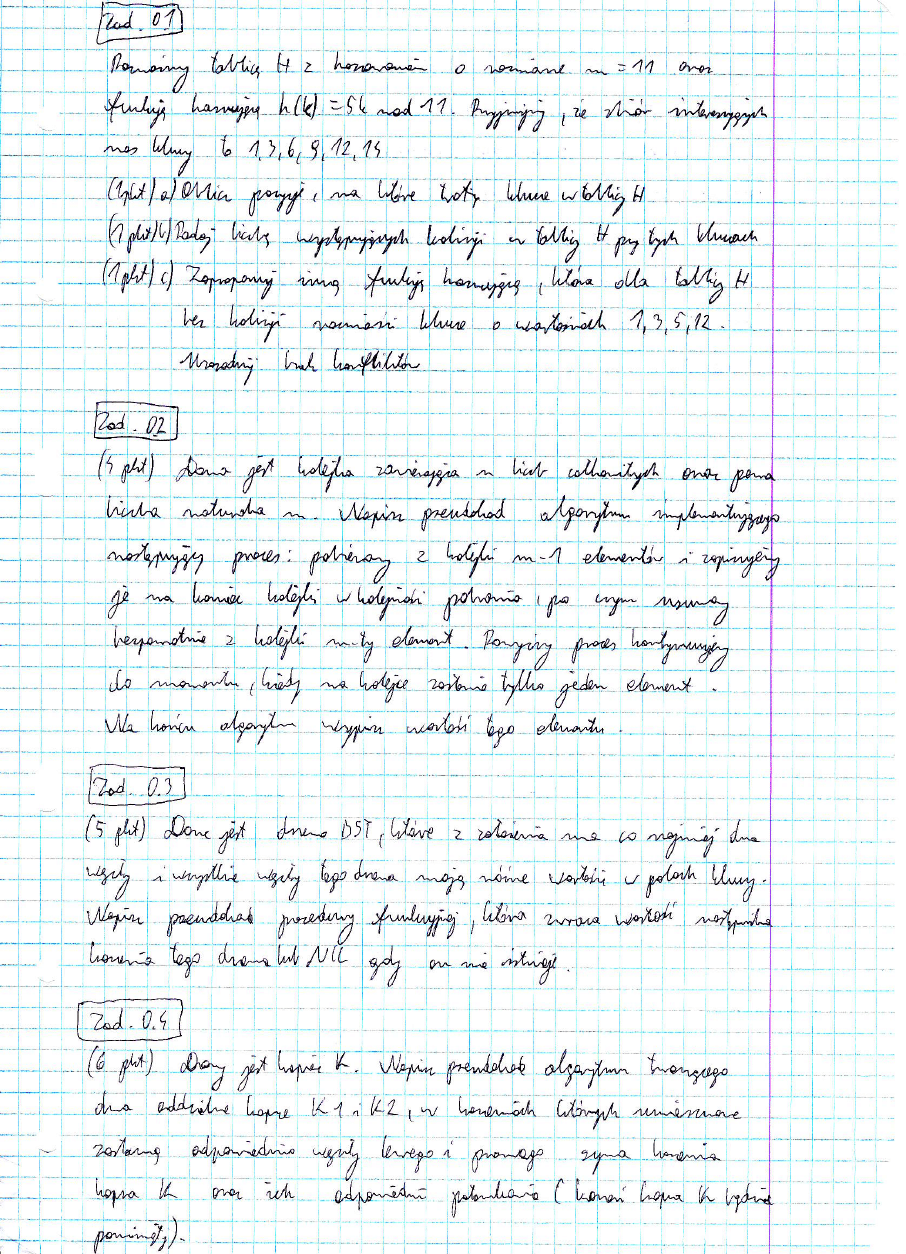 Zad. 01
Rozważmy tablicę H z haszowaniem o rozmiarze m = 11 oraz
funkcję haszującą h(k) = 5k mod 11. Przyjmijmy, że zbiór interesujących
nas kluczy to 1, 3, 6, 9, 12, 14
(1pkt/a) Oblicz pozycje, na które trafią klucze w tablicy H
(1 pkt/b) Podaj liczbę występujących kolizji w tablicy H przy tych kluczach
(1 pkt/c) Zaproponuj inną funkcję haszującą, która dla tablicy H
bez kolizji rozmieści klucze o wartościach 1, 3, 5, 12.
Uzasadnij brak konfliktów
Zad. 02
(4 pkt) Dana jest kolejka zawierająca n liczb całkowitych oraz pewna
liczba naturalna m. Napisz pseudokod algorytmu implementującego
następujący proces: pobieramy z kolejki m-1 elementów i zapisujemy
je na koniec kolejki w kolejności pobrania, po czym usuwamy
bezpowrotnie z kolejki m-ty element. Powyższy proces kontynuujemy
do momentu, kiedy na kolejce zostanie tylko jeden element.
Na końcu algorytmu wypisz wartość tego elementu.
Zad. 0.3
(5 pkt) Dane jest drzewo BST, które z założenia ma co najmniej dwa
węzły i wszystkie węzły tego drzewa mają różne wartości w polach kluczy.
Napisz pseudokod procedury funkcyjnej, która zwraca wartość następnika
korzenia tego drzewa lub NIL gdy on nie istnieje.
Zad. 0.4
(6 pkt) Dany jest kopiec K. Napisz pseudokod algorytmu tworzącego
dwa oddzielne kopce K1 i K2, w korzeniach których umieszczone
zostaną odpowiednio węzły lewego i prawego syna korzenia
kopca K oraz ich odpowiedni potomkowie (korzeń kopca K będzie
pominięty).